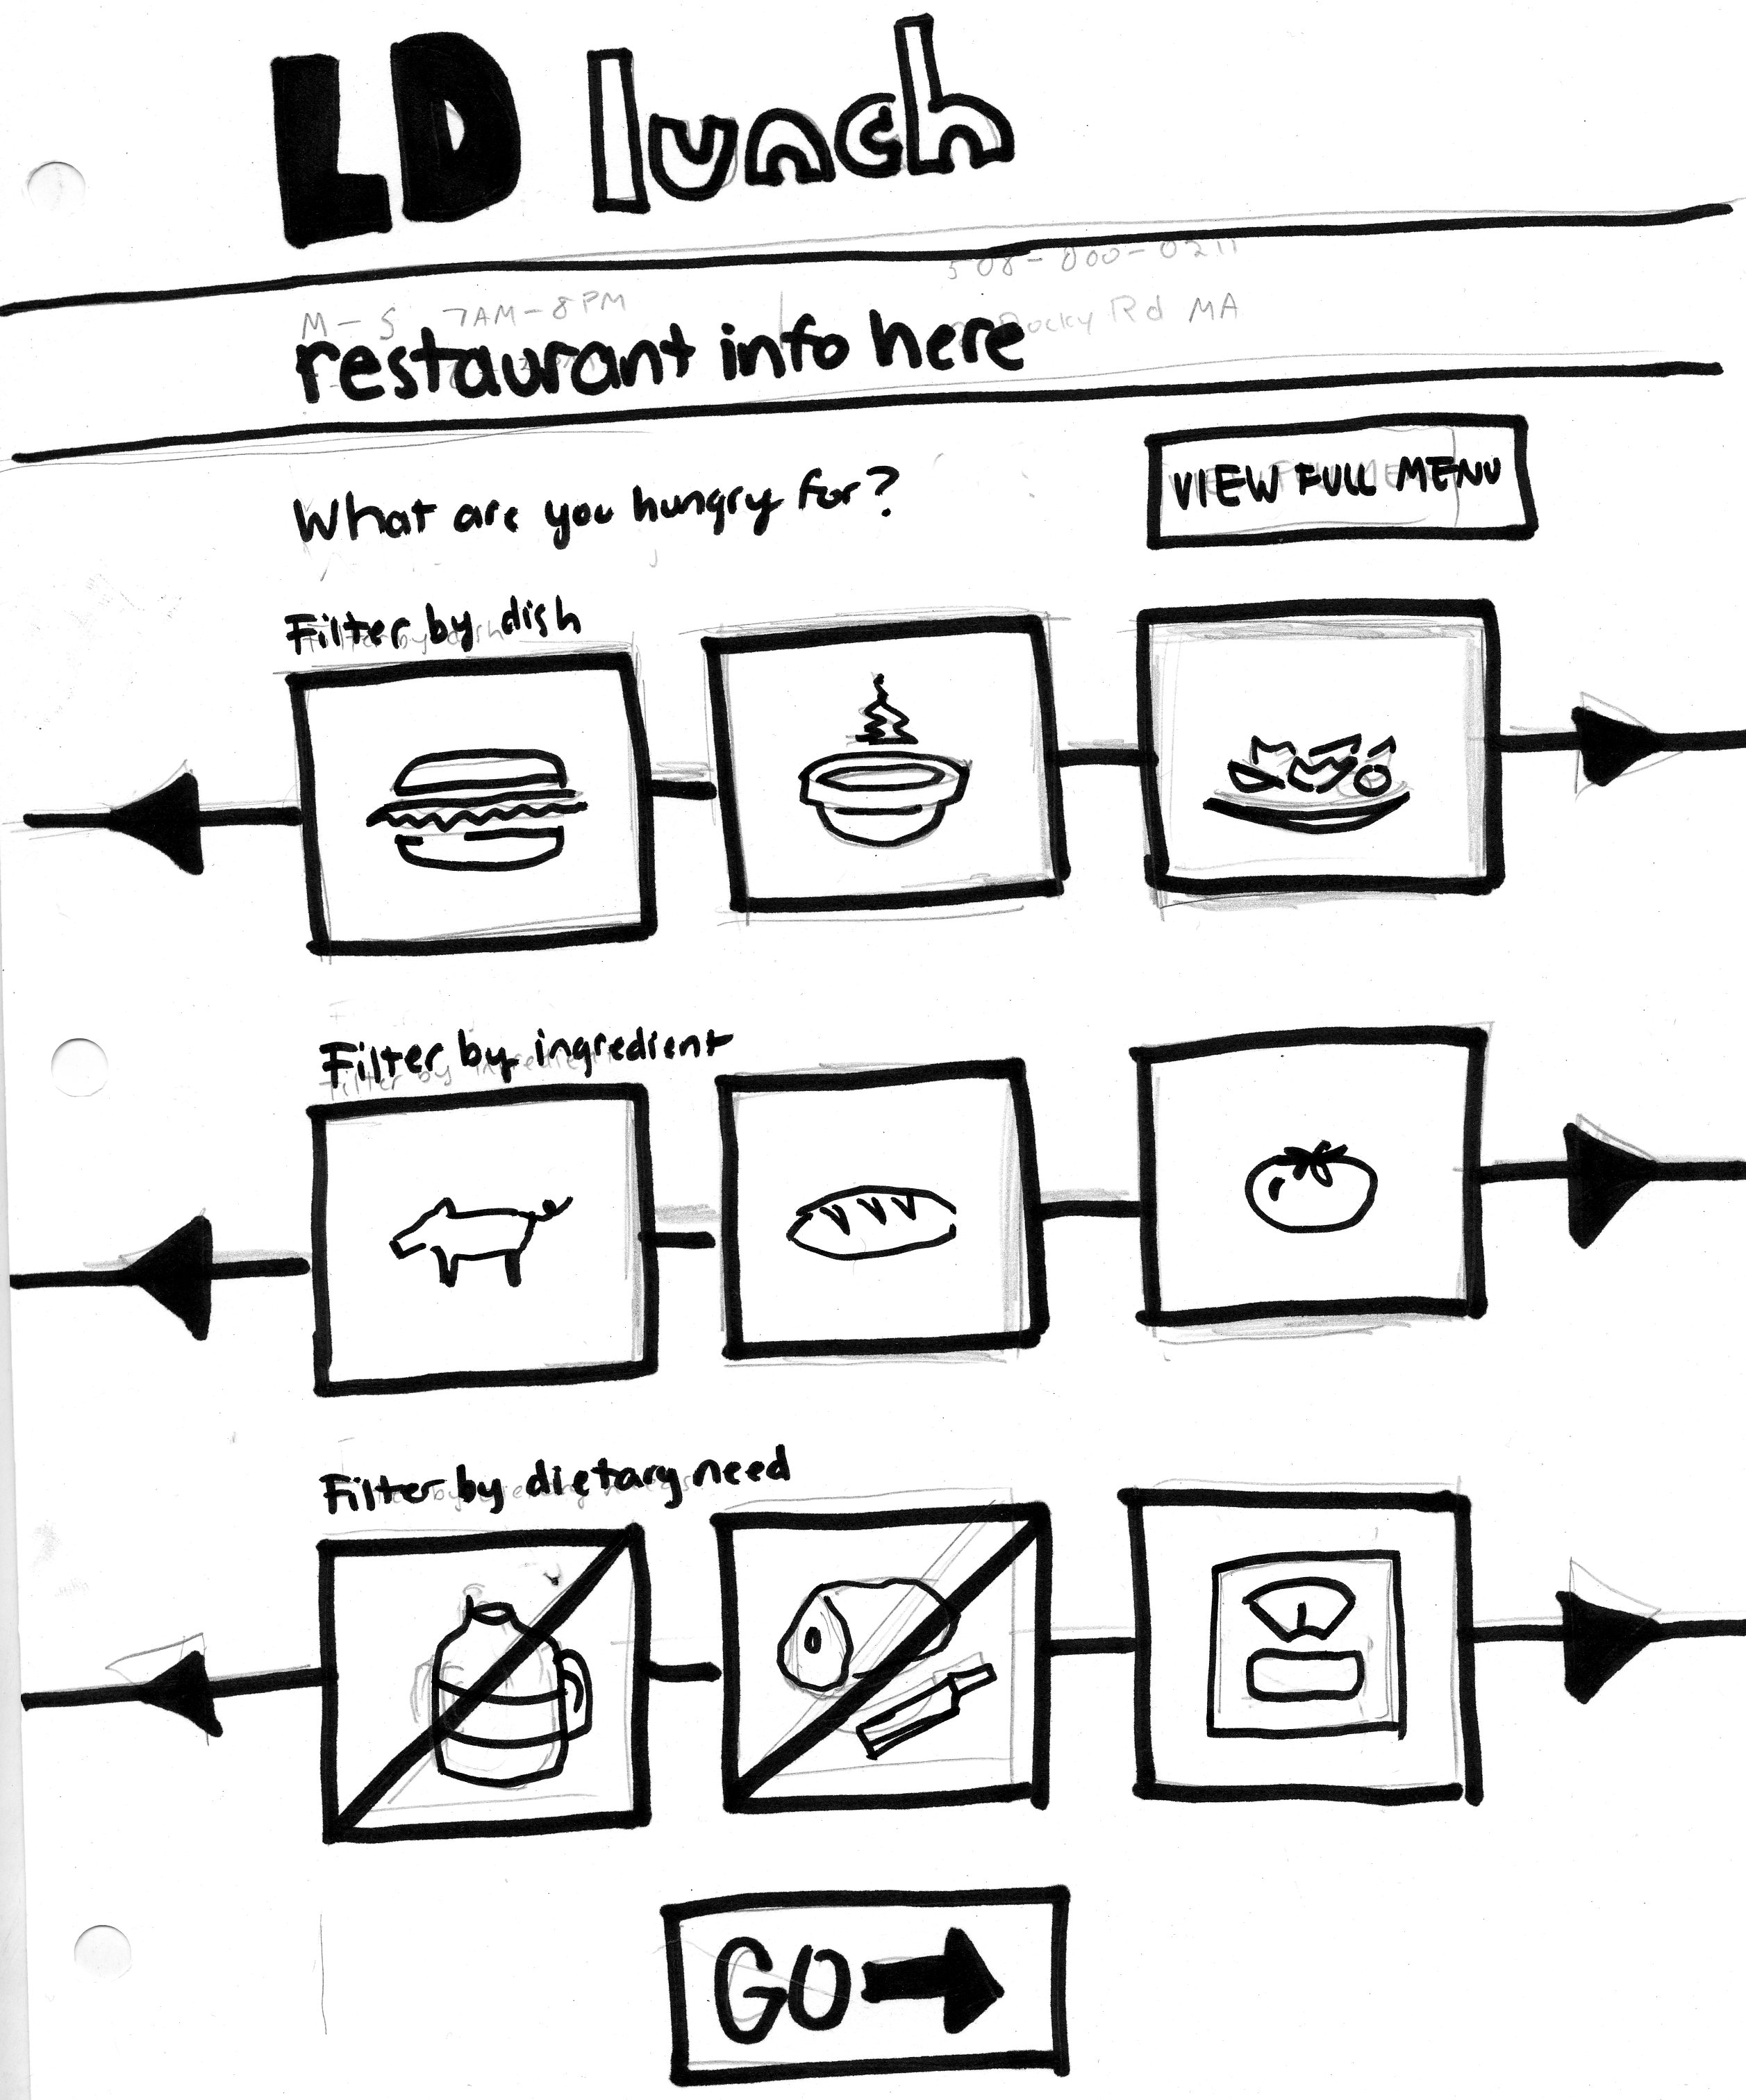 LD lunch
508-000-0211
M - S 7AM-8PM
Rocky Rd MA
restaurant info here
What are you hungry for?
VIEW FULL MENU
Filter by dish
Filter by ingredient
Filter by dietary need
GO